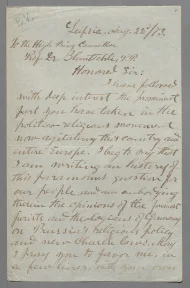 Leipsic, Aug. 22/73.
To the High Privy Councillor
Prof. Dr. Bluntschli,
Honored Sir:
I have followed
with deep interest the prominent
part you have taken in the
politico-religious movement
now agitating this country and
entire Europe. I beg to say that
I am writing an history of
this paramount question for
our people and am embodying
therein the opinions of the foremost
jurists and theologians of Germany
on Prussia's religious policy
and new Church laws. May
I pray you to favor me, in
a few lines, with your own